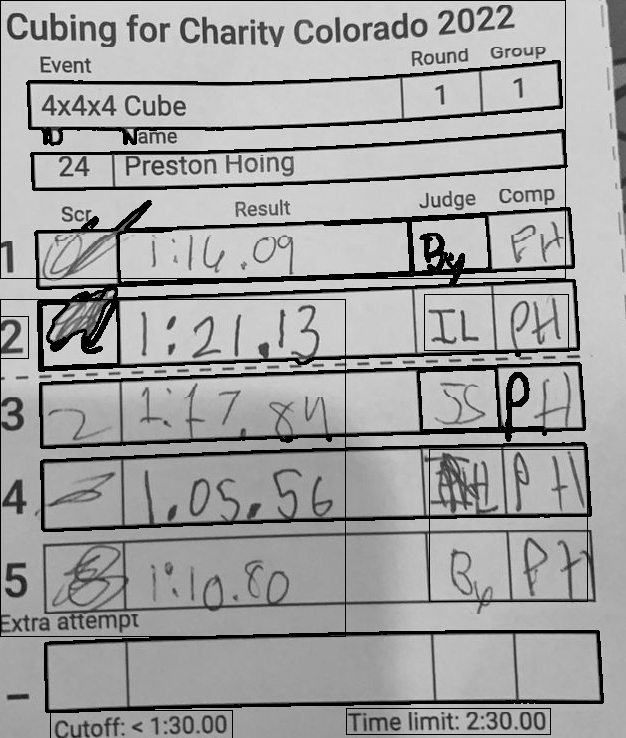 Cubing for Charity Colorado 2022
Event Round Group
4x4x4 Cube 1 1
ID Name
24 Preston Hoing
Scr Result Judge Comp
1 1:16.09 By PH
2 1:21.13 IL PH
3 2 1:17.84 JS PH
4 1.05.56 PH
5 1:10.80 By PH
Extra attempt
_
Cutoff: < 1:30.00 Time limit: 2:30.00